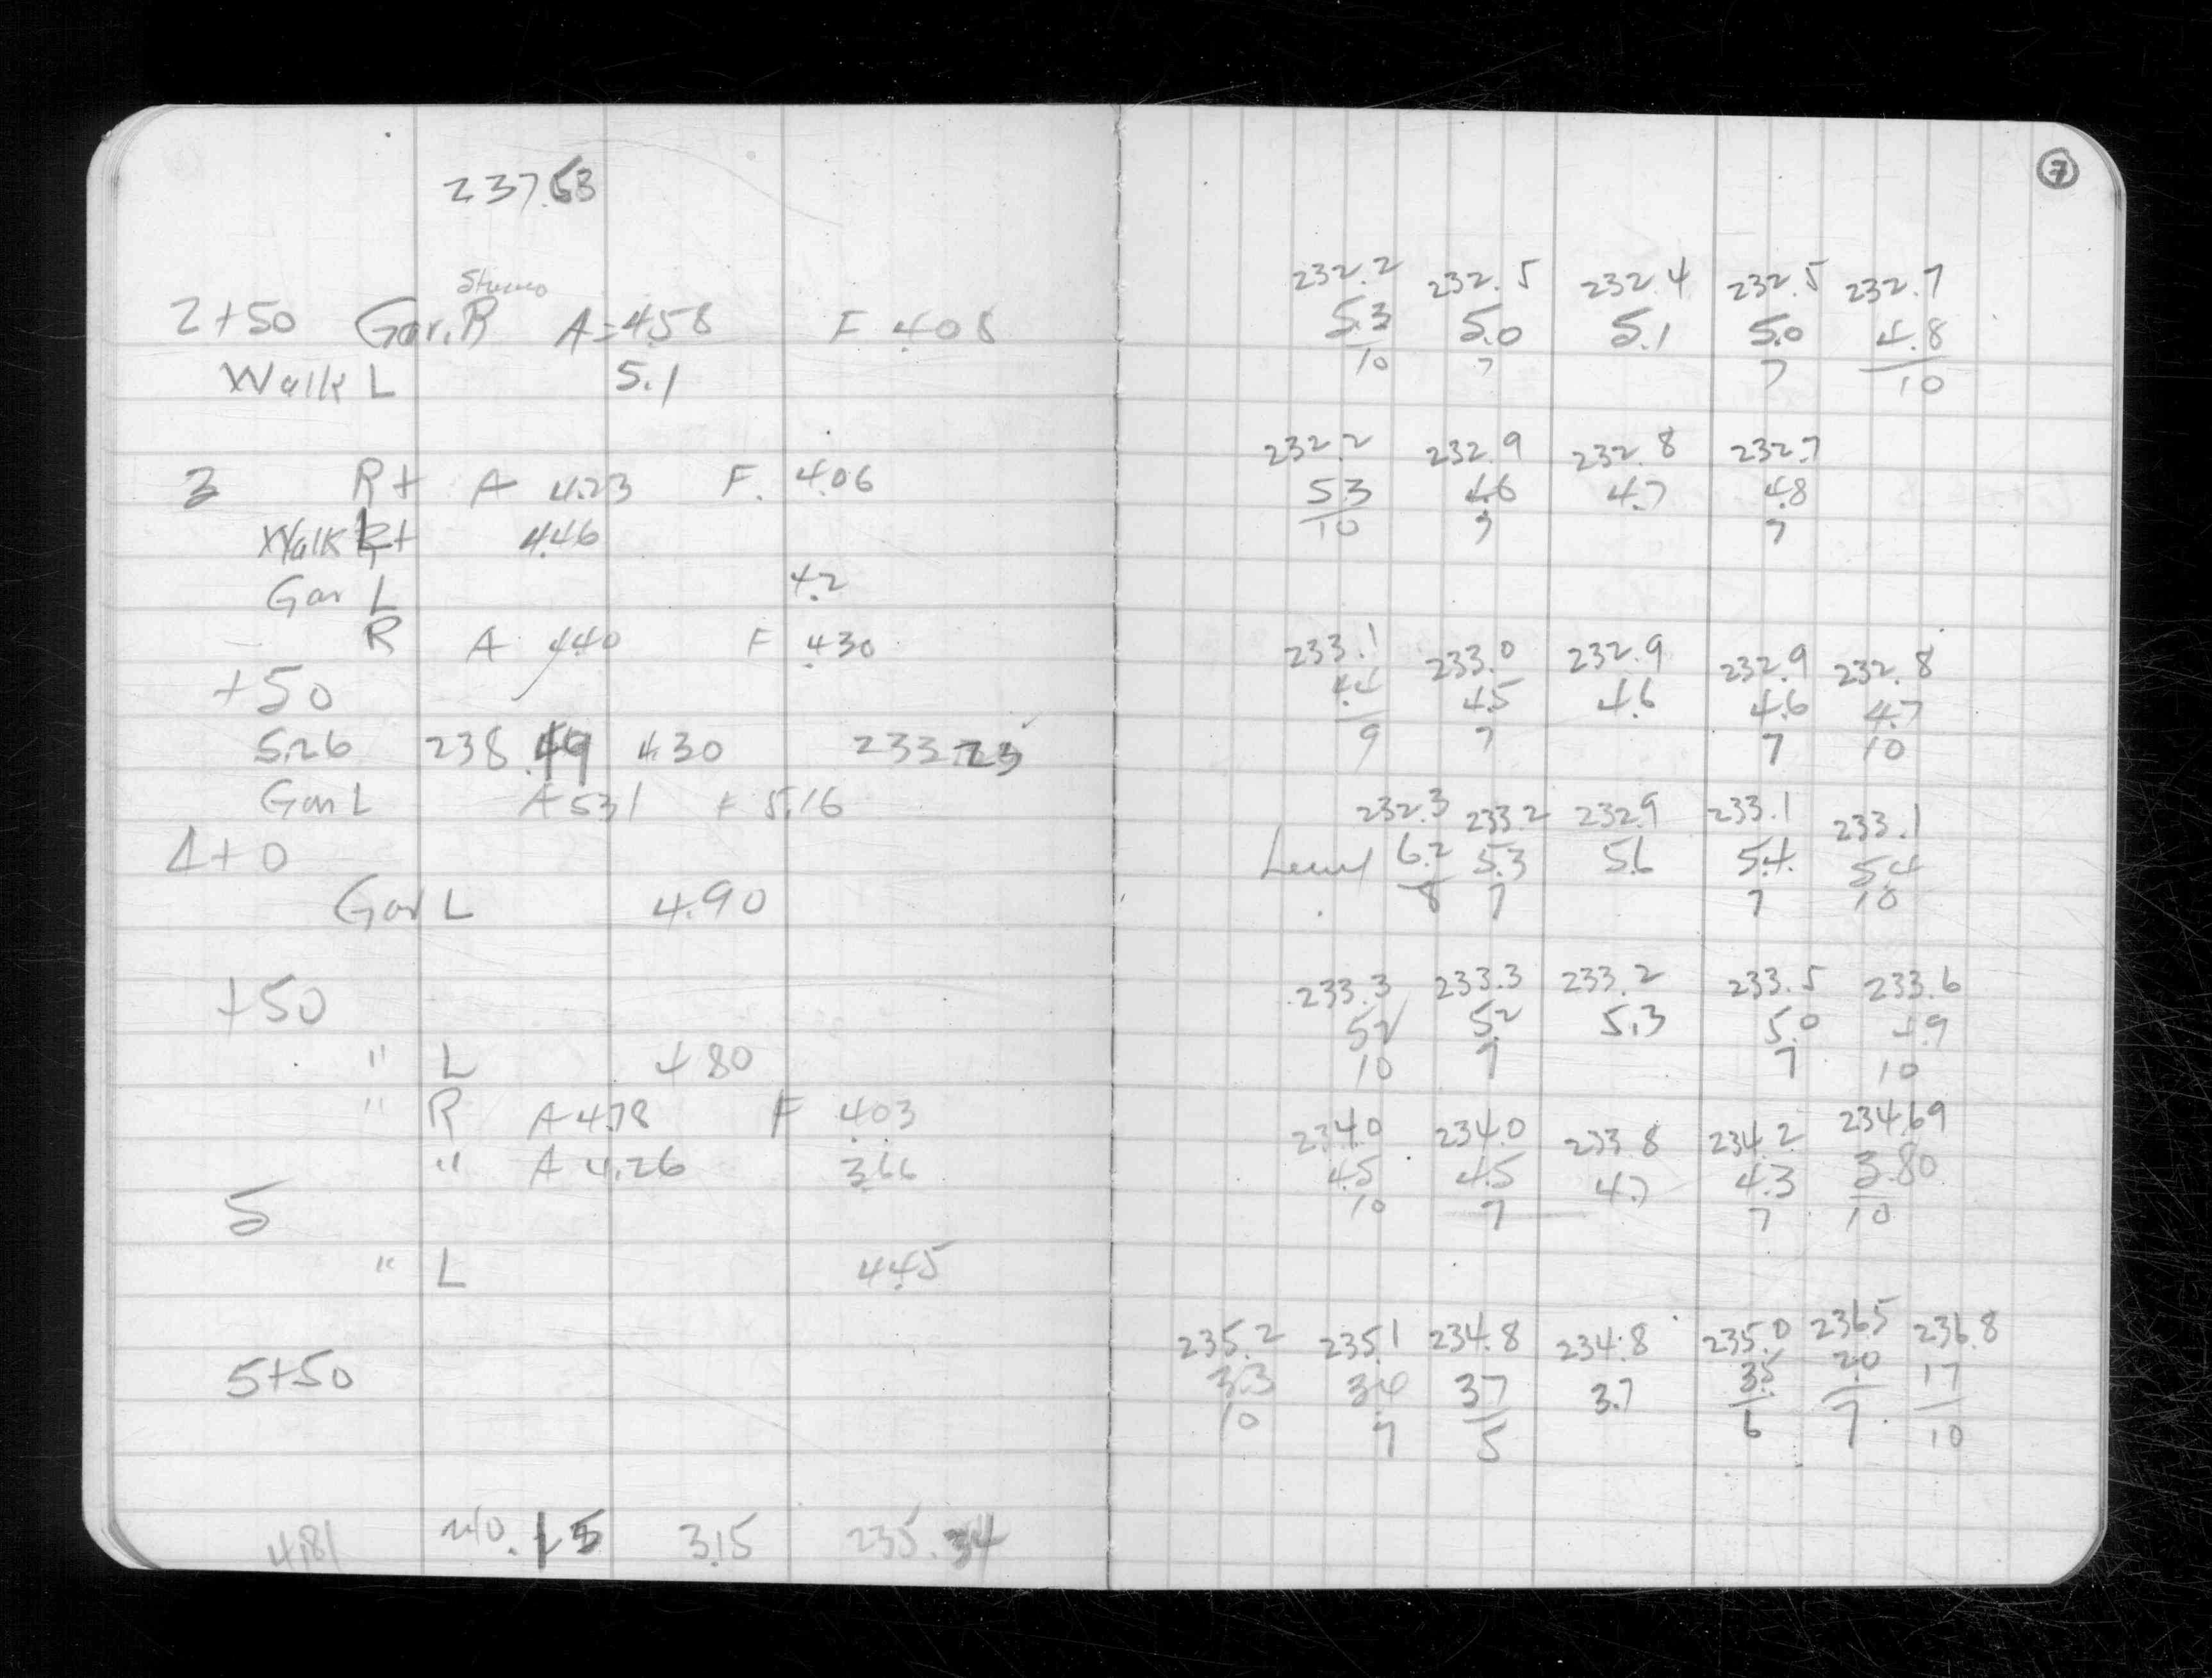 237.53
2+50 Gar. R A=4.58 F 4.08
Walk L 5.1
3 Rt A 4.23 F. 4.06
Walk 4.46
Gar L 4.2
R A 4.40 F 4.30
+50
5.26 238.49 4.30 233.23
Gar L A 5.31 F 5.16
4+0
Gar L 4.90
+50
" L 4.80
" R A 4.78 F 4.03
" A 4.26 3.66
5
" L 4.45
5+50
4.81 240.15 3.15 235.34
7
232.2 232.5 232.4 232.5 232.7
5.3 5.0 5.1 5.0 4.8
10 7 7 10
232.2 232.9 232.8 232.7
5.3 4.6 4.7 4.8
10 7 7
233.1 233.0 232.9 232.9 232.8
4.4 4.5 4.6 4.6 4.7
9 7 7 10
232.3 233.2 232.9 233.1 233.1
6.2 5.3 5.6 5.4 5.4
8 7 7 10
233.3 233.3 233.2 233.5 233.6
5.2 5.2 5.3 5.0 4.9
10 7 7 10
234.0 234.0 233.8 234.2 234.69
4.5 4.5 4.7 4.3 3.80
10 7 7 10
235.2 235.1 234.8 234.8 235.0 236.5 236.8
3.3 3.4 3.7 3.7 3.5 2.0 1.7
10 7 5 6 7 10